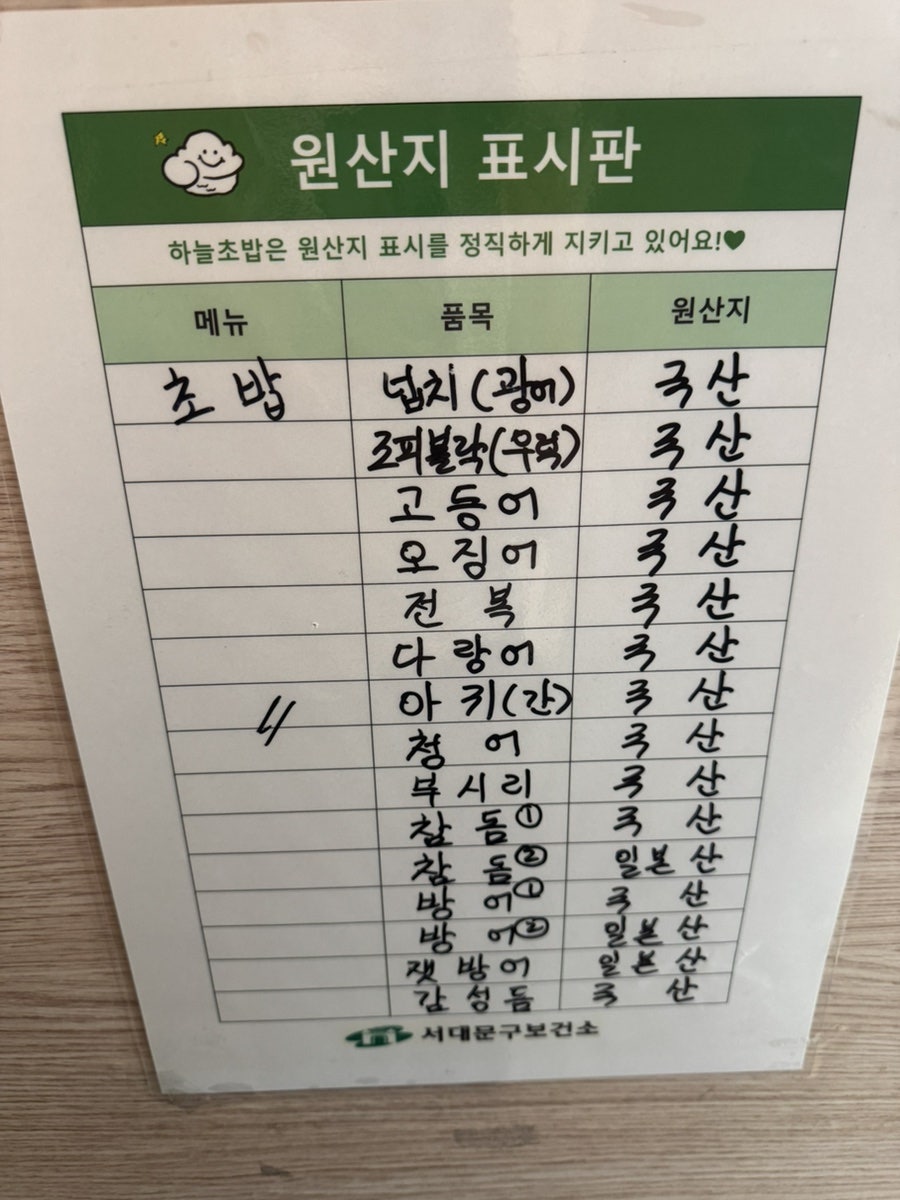 원산지 표시판
하늘초밥은 원산지 표시를 정직하게 지키고 있어요!♥
메뉴 품목 원산지
초밥 넙치(광어) 국산
조피볼락(우럭) 국산
고등어 국산
오징어 국산
전복 국산
다랑어 국산
〃 아귀(간) 국산
청어 국산
부시리 국산
참돔① 국산
참돔② 일본산
방어① 국산
방어② 일본산
잿방어 일본산
감성돔 국산
서대문구보건소